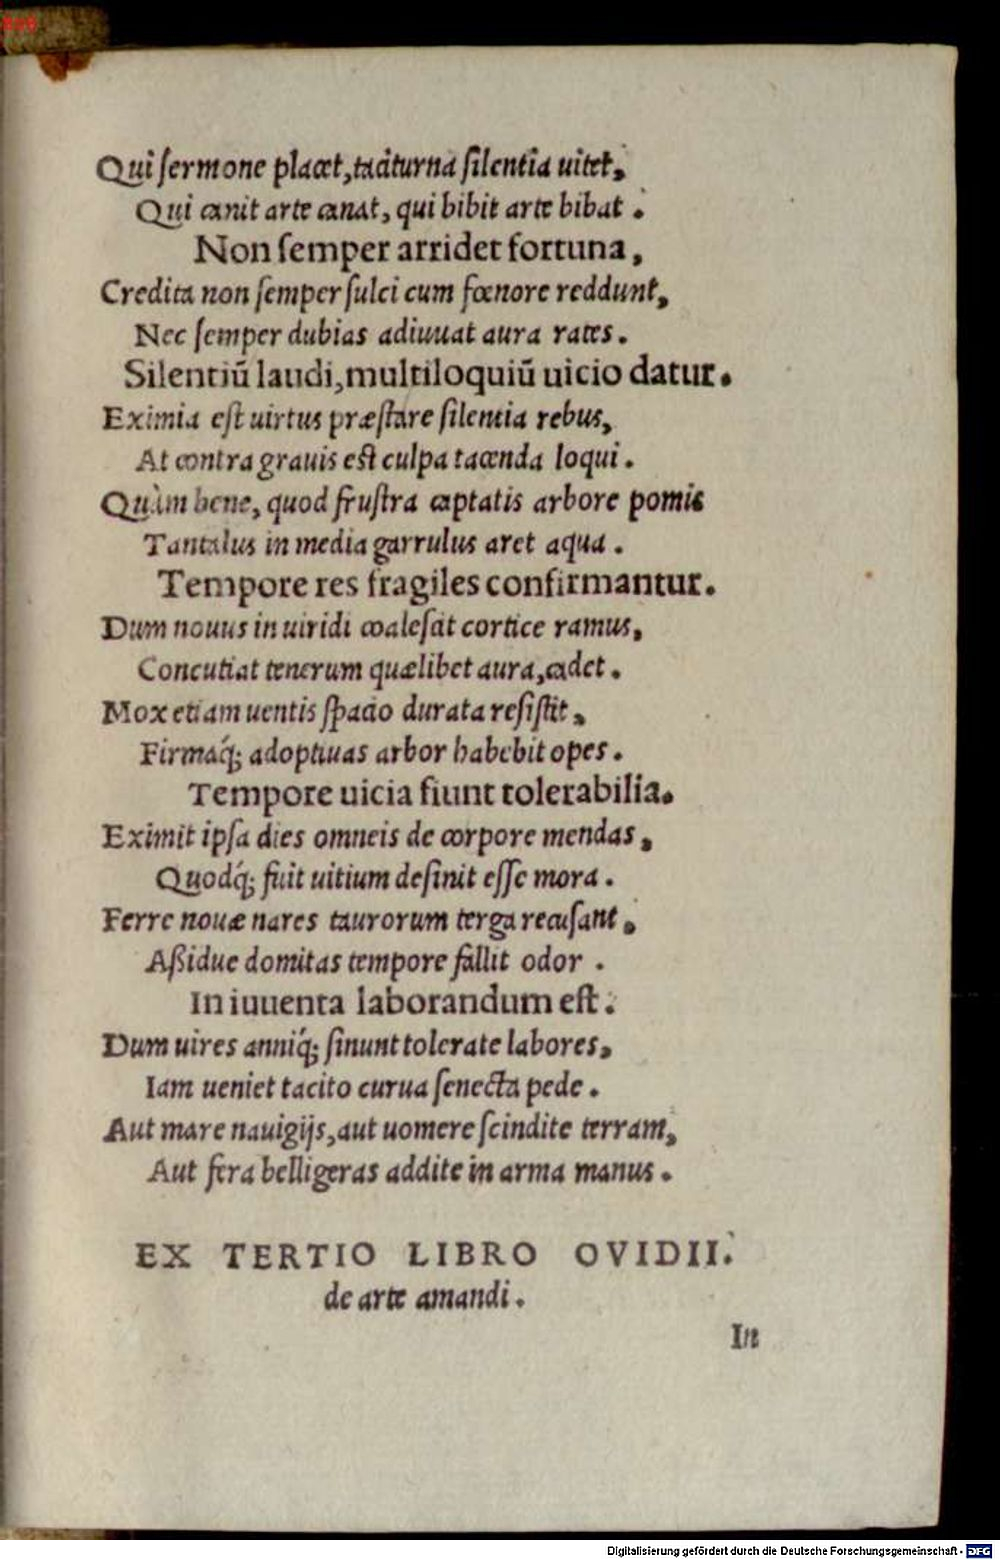 Qui ſermone placet, taciturna ſilentia uitet,
Qui canit arte canat, qui bibit arte bibat.
Non ſemper arridet fortuna,
Credita non ſemper ſulci cum fœnore reddunt,
Nec ſemper dubias adiuuat aura rates.
Silentiũ laudi, multiloquiũ uicio datur.
Eximia eſt uirtus præſtare ſilentia rebus,
At contra grauis eſt culpa tacenda loqui.
Quàm bene, quod fruſtra captatis arbore pomis
Tantalus in media garrulus aret aqua.
Tempore res fragiles confirmantur.
Dum nouus in uiridi coaleſcit cortice ramus,
Concutiat tenerum quælibet aura, cadet.
Mox etiam uentis ſpacio durata reſiſtit,
Firmaq́; adoptiuas arbor habebit opes.
Tempore uicia fiunt tolerabilia.
Eximit ipſa dies omneis de corpore mendas,
Quodq́; fuit uitium deſinit eſſe mora.
Ferre nouæ nares taurorum terga recuſant,
Aßidue domitas tempore fallit odor.
In iuuenta laborandum eſt.
Dum uires anniq́; ſinunt tolerate labores,
Iam ueniet tacito curua ſenecta pede.
Aut mare nauigijs, aut uomere ſcindite terram,
Aut fera belligeras addite in arma manus.
EX TERTIO LIBRO OVIDII.
de arte amandi.
In
Digitalisierung gefördert durch die Deutsche Forschungsgemeinschaft - DFG